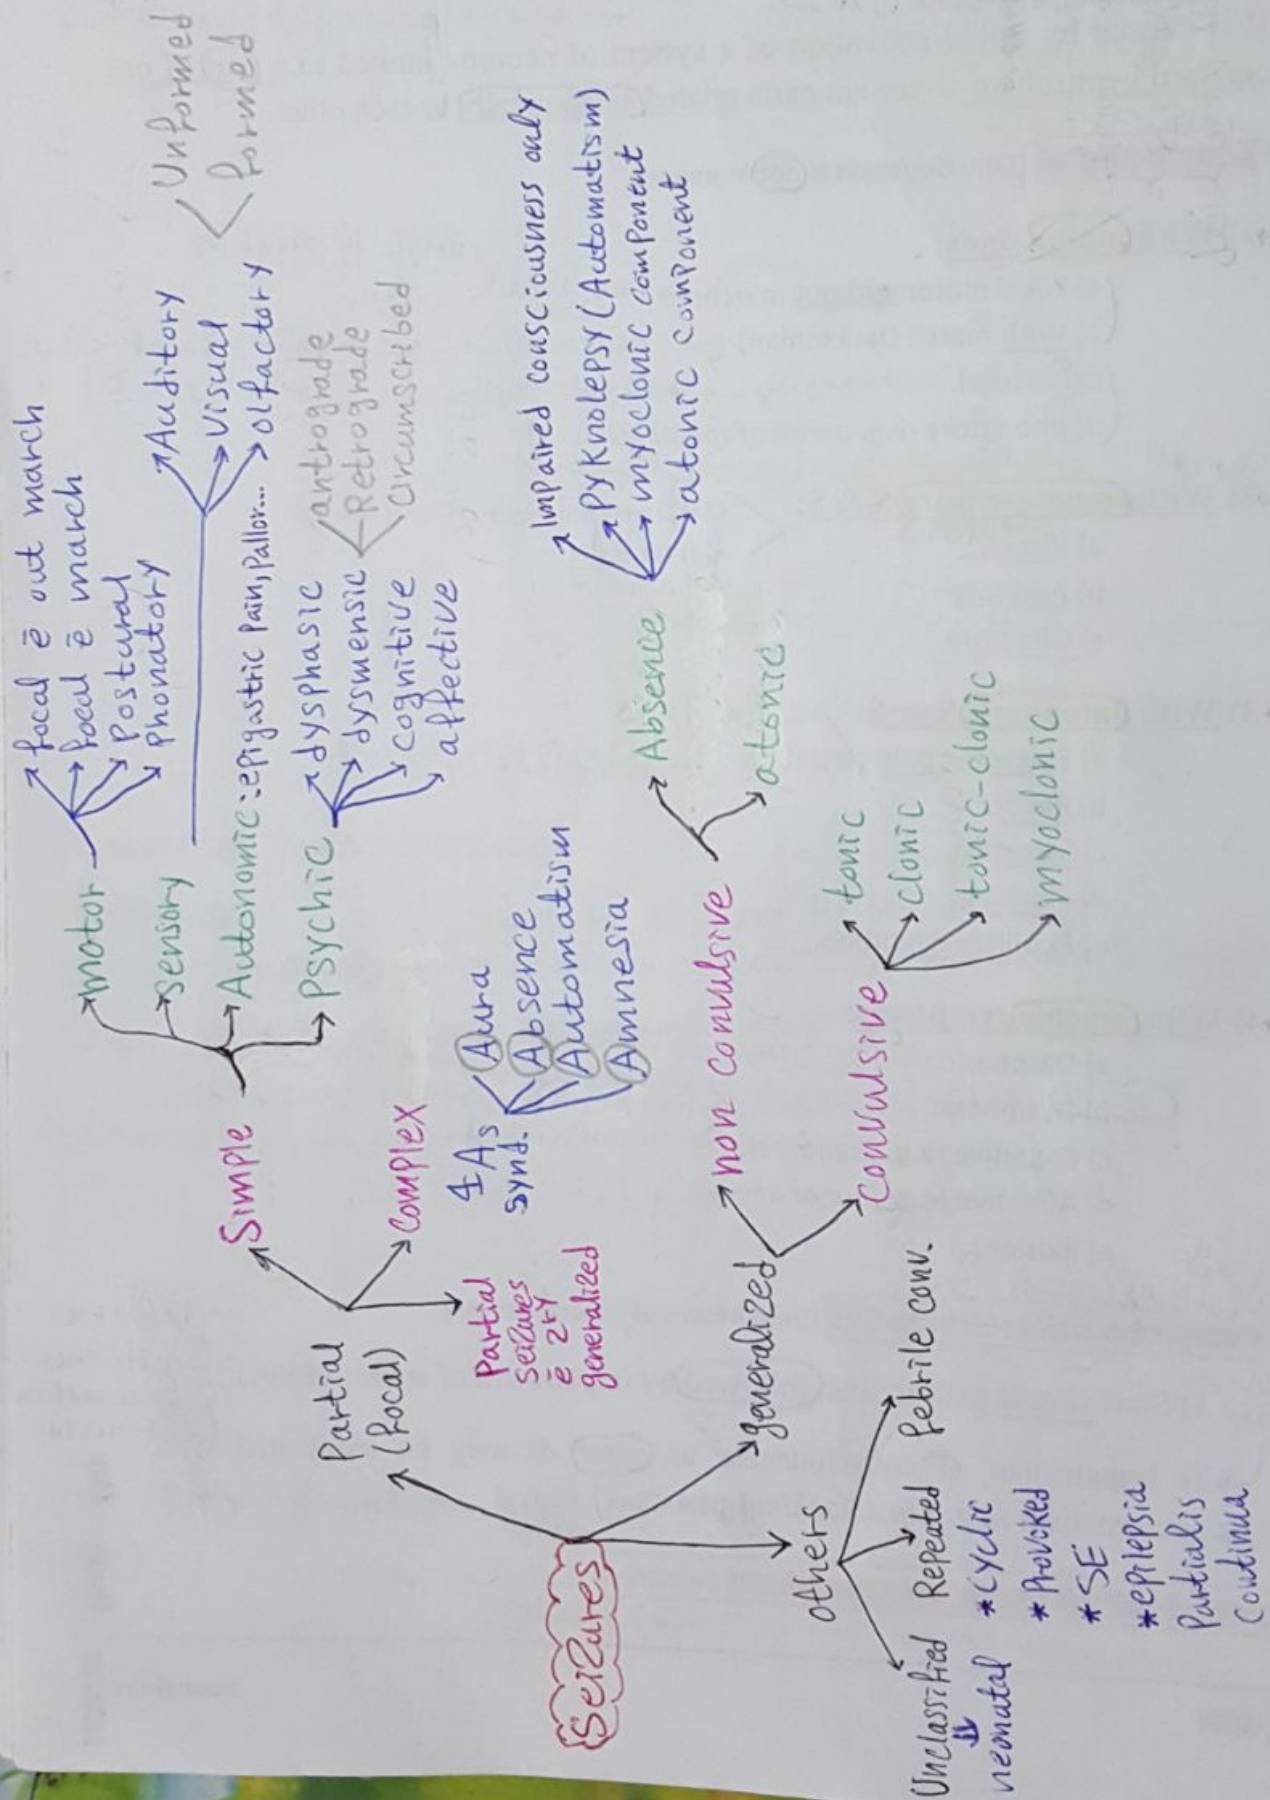 Seizures
Partial
(focal)
Simple
motor
focal ē out march
focal ē march
Postural
Phonatory
Sensory
Auditory
Visual
Unformed
formed
olfactory
Autonomic: epigastric Pain, Pallor...
Psychic
dysphasic
dysmensic
antrograde
Retrograde
Circumscribed
cognitive
affective
Complex
4 As
Synd.
Aura
Absence
Automatism
Amnesia
Partial
seizures
ē 2ry
generalized
generalized
non convulsive
Absence
Impaired consciousness only
Pyknolepsy (Automatism)
myoclonic component
atonic component
atonic
Convulsive
tonic
clonic
tonic-clonic
myoclonic
others
Unclassified
⇓
neonatal
Repeated
*Cyclic
*Provoked
*SE
*epilepsia
Partialis
Continua
febrile conv.